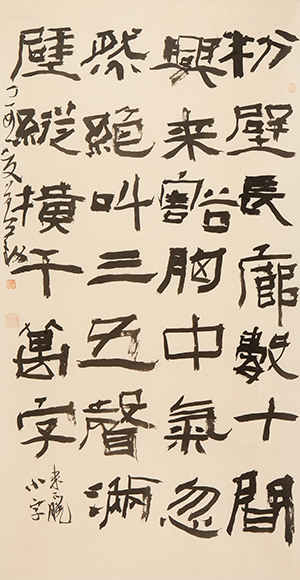 粉壁長廊數十間
興来豁胸中氣忽
然絶叫三五聲滿
壁縱橫千萬字
来下脱
小字